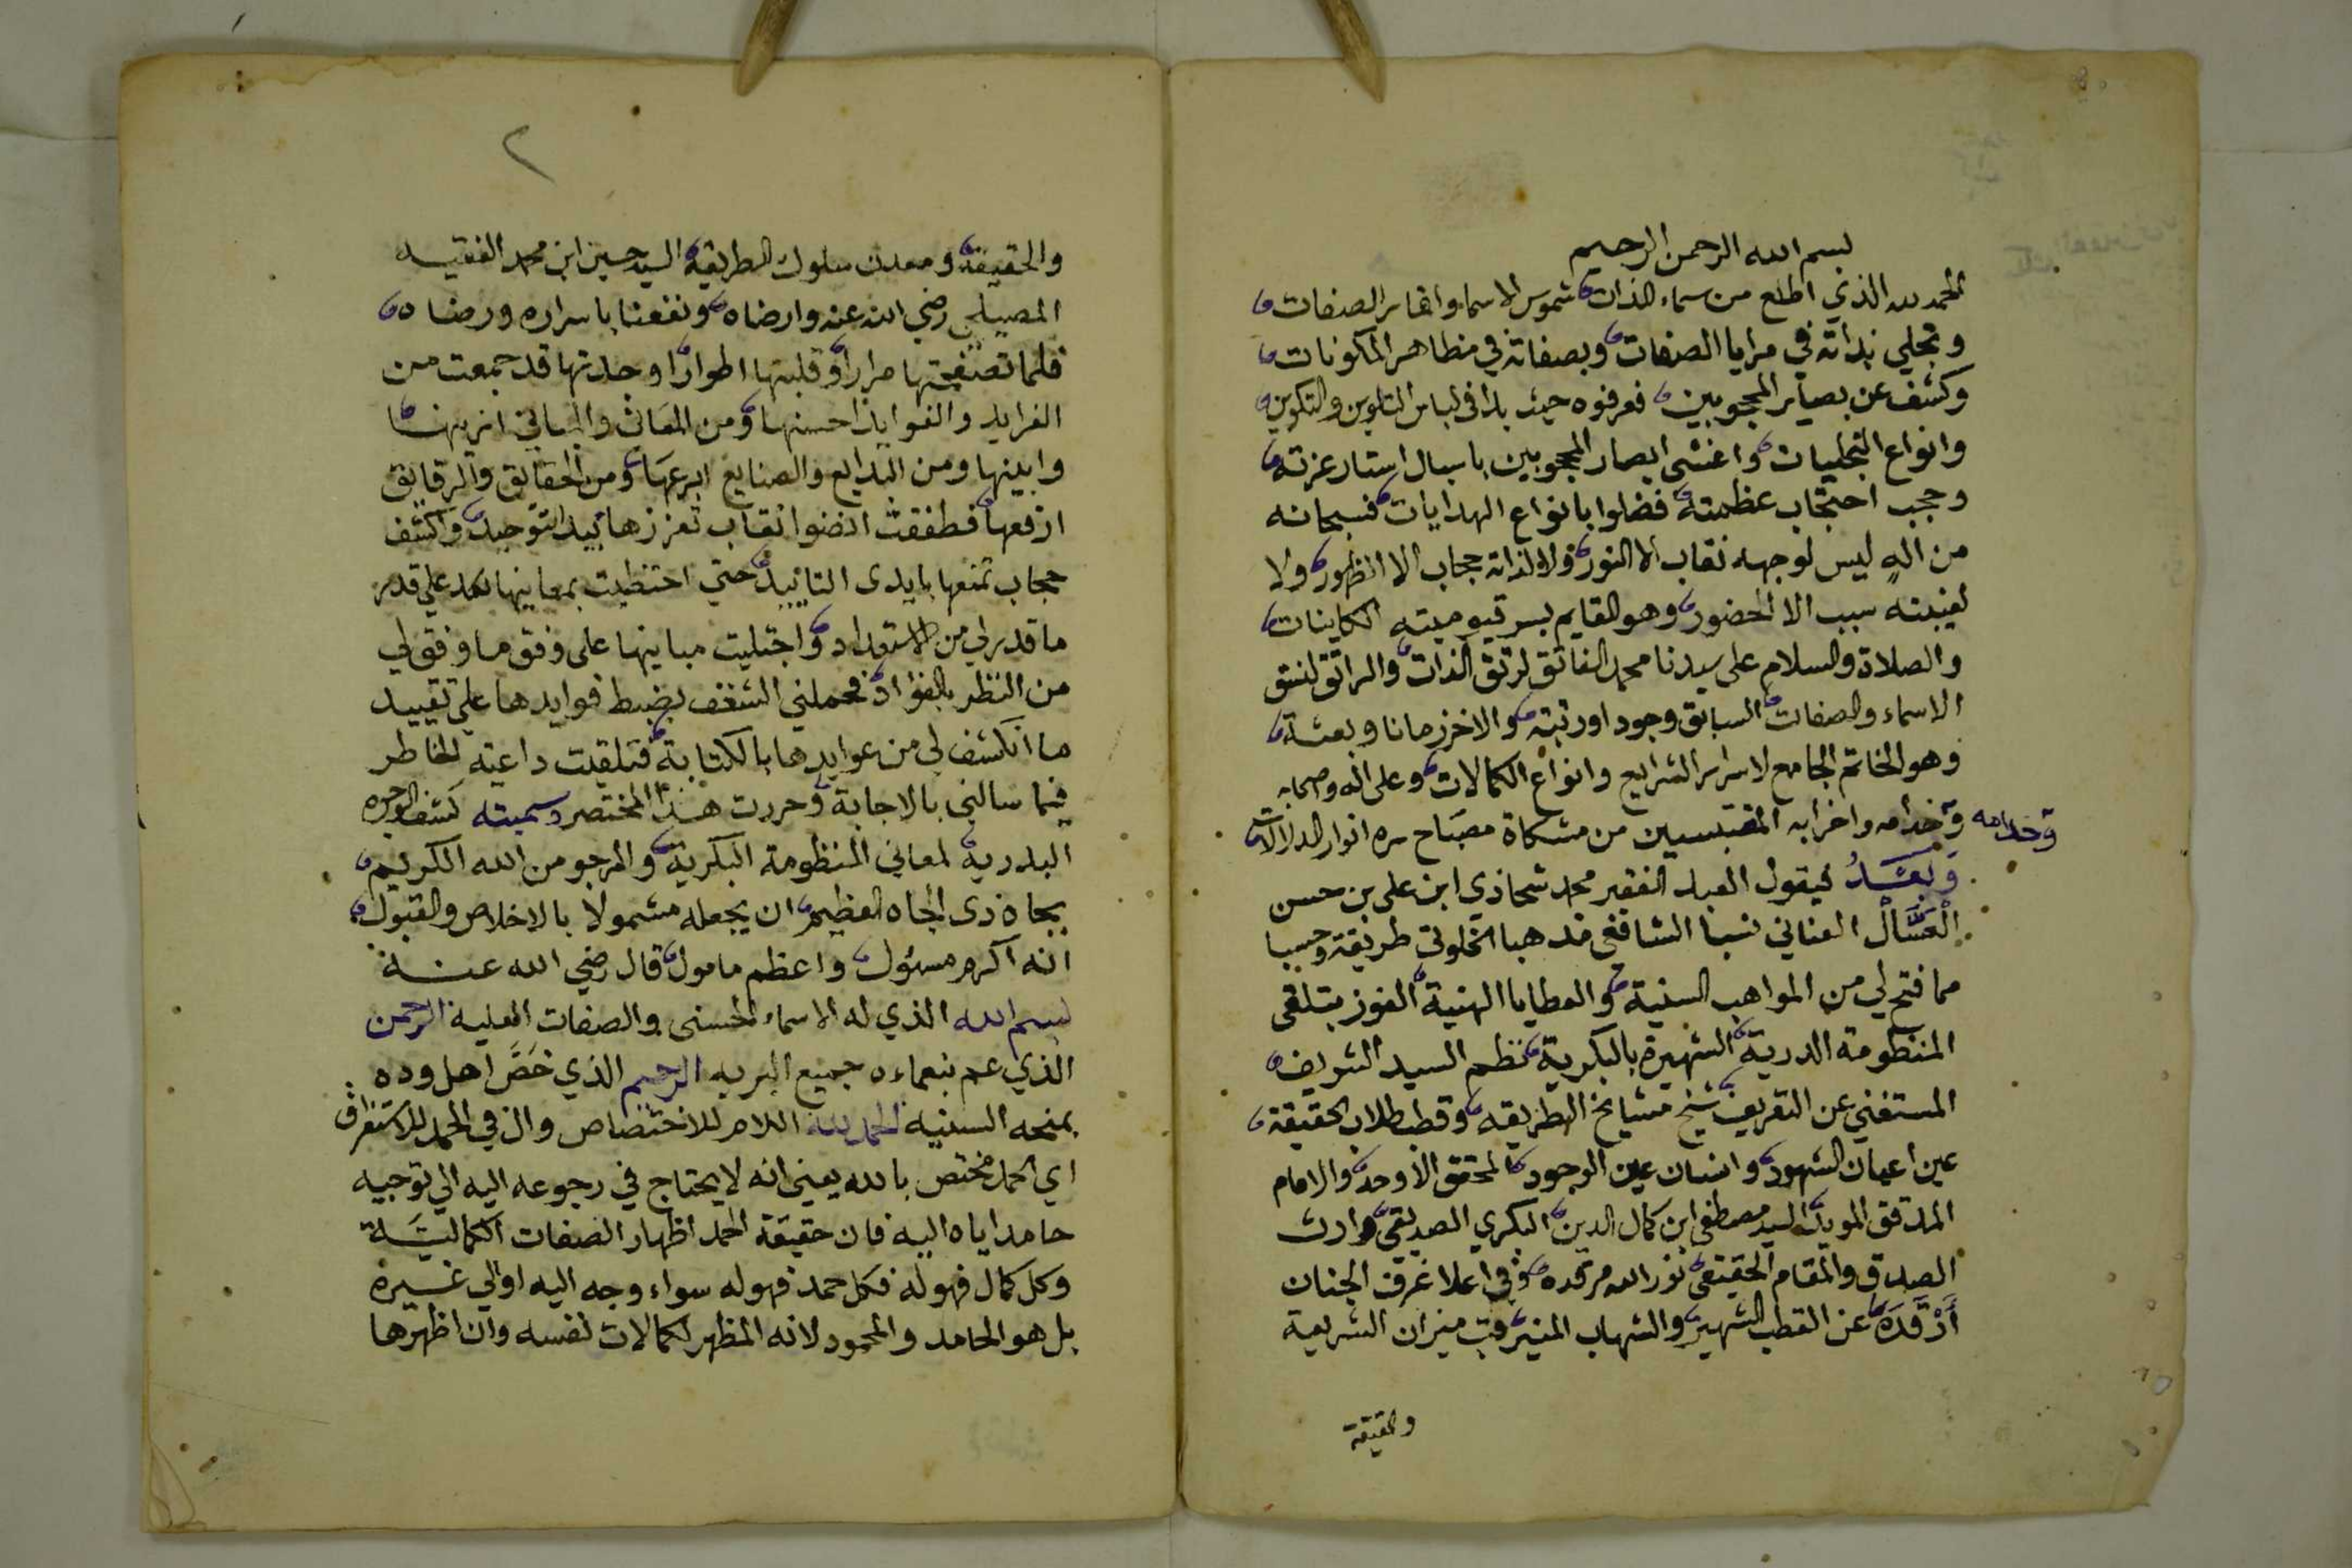 بسم الله الرحمن الرحيم
الحمد لله الذي اطلع من سماء الذات شموس الاسماء واقمار الصفات
وتجلي بذاته في مرايا الصفات وبصفاته في مظاهر المكونات
وكشف عن بصاير المحبوبين فعرفوه حيث بدا في لباس التلوين والتكوين
وانواع التجليات واغشى ابصار المحجوبين باسبال استار عزته
وحجب احتجاب عظمته فضلوا بانواع الهدايات فسبحانه
من اله ليس لوجهه نقاب الا النور ولا لذاته حجاب الا الظهور ولا
لغيبته سبب الا الحضور وهو القايم بسر قيوميته الكاينات
والصلاة والسلام على سيدنا محمد الفاتق لرتق الذات والراتق لفتق
الاسماء والصفات السابق وجودا ورتبة والاخر زمانا وبعثة
وهو الخاتم الجامع لاسرار الشرايع وانواع الكمالات وعلى اله وصحابه
وخدامه واحزابه المقتبسين من مشكاة مصباح سره انوار الدلالات
وخدامه
وبعد فيقول العبد الفقير محمد شحاذي ابن علي بن حسن
العسال العناني نسبا الشافعي مذهبا الخلوتي طريقة وحسبا
مما فتح لي من المواهب السنية والعطايا الهنية الفوز بتلقي
المنظومة الدرية الشهيرة بالبكرية نظم السيد الشريف
المستغني عن التعريف شيخ مشايخ الطريقه وقطب طلاب الحقيقة
عين اعيان الشهود وانسان عين الوجود المحقق الاوحد والامام
المدقق المويد السيد مصطفى ابن كمال الدين البكري الصديقي وارث
الصدق والمقام الحقيقي نور الله مرقده وفي اعلا غرف الجنان
أرْقَدَهُ عن القطب الشهير والشهاب المنير قب ميزان الشريعة
والحقيقة
٢
والحقيقة ومعدن سلوك الطريقة السيد حسين ابن محمد الفقيه
المصيلحي رضي الله عنه وارضاه ونفعنا باسراره ورضاه
فلما تصفحتها مرارا وقلبتها اطوارا وجدتها قد جمعت من
الفرايد والفوايد احسنها ومن المعاني والمباني ازينها
وابينها ومن البدايع والصنايع ابرعها ومن الحقايق والرقايق
ارفعها فطفقت انضوا نقاب تعززها بيد التوحيد واكشف
حجاب تمنعها بايدي التاييد حتى احتظيت بمعانيها لكل على قدر
ما قدر لي من الاستعداد واجتليت مبانيها على وفق ما وفق لي
من النظر بالفؤاد فحملني الشغف بضبط فوايدها علي تقييد
ما انكشف لي من عوايدها بالكتابة فتلقيت داعية الخاطر
فيما سالني بالاجابة وحررت هذا المختصر وسميته كشف الوجوه
البدرية لمعاني المنظومة البكرية والمرجو من الله الكريم
بجاه ذي الجاه العظيم ان يجعله مشمولا بالاخلاص والقبول
انه اكرم مسئول واعظم مامول قال رضي الله عنه
بسم الله الذي له الاسماء الحسنى والصفات العليه الرحمن
الذي عم بنعماءه جميع البريه الرحيم الذي خصَّ اهل وده
بمنحه السنيه الحمد لله اللام للاختصاص وال في الحمد للاستغراق
اي الحمد مختص بالله يعني انه لا يحتاج في رجوعه اليه الي توجيه
حامد اياه اليه فان حقيقة الحمد اظهار الصفات الكمالية
وكل كمال فهو له فكل حمد فهو له سواء وجه اليه او الي غيره
بل هو الحامد والمحمود لانه المظهر لكمالات نفسه وان اظهرها